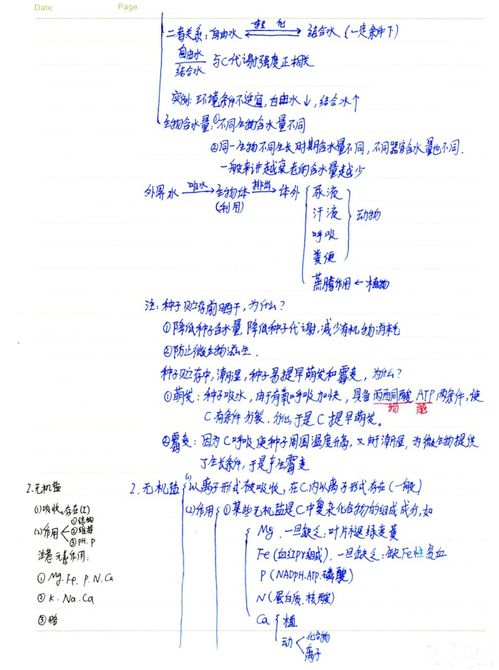 Date.
Page:
二者关系:自由水 转化 结合水(一定条件下)
自由水
结合水 与C代谢强度正相关
实例:环境条件不适宜,自由水↓,结合水↑
生物含水量:①不同生物含水量不同
②同一生物不同生长时期含水量不同,不同器官含水量也不同.
一般来讲越衰老的含水量越少
外界水 吸水 生物体 排出 体外
(利用)
尿液
汗液 动物
呼吸
粪便
蒸腾作用←植物
注:种子贮存前晒干,为什么?
①降低种子含水量,降低种子代谢,减少有机物消耗
②防止微生物滋生.
种子贮存中,潮湿,种子易提早萌发和霉变,为什么?
①萌发:种子吸水,由于有氧呼吸加快,具备丙酮酸,ATP两条件,使
物 能
C有条件分裂.分化,于是C提早萌发。
②霉变:因为C呼吸使种子周围温度升高,又由于潮湿,为微生物提供
了生长条件,于是产生霉变
2.无机盐
(1)吸收,存在(I)
(2)作用 ①结构
②维持
③PH.P
注意元素作用:
①Mg.Fe.P.N.Ca
②K.Na.Ca
2.无机盐 (1)以离子形式被吸收,在C内以离子形式存在(一般)
(2)作用 ①某些无机盐是C中复杂化合物的组成成分,如
Mg.一旦缺乏:叶片褪绿变黄
Fe(血红Pr组成).一旦缺乏:缺Fe性贫血
P(NADPH.ATP.磷酸)
N(蛋白质.核酸)
Ca 植
动 化合物
离子